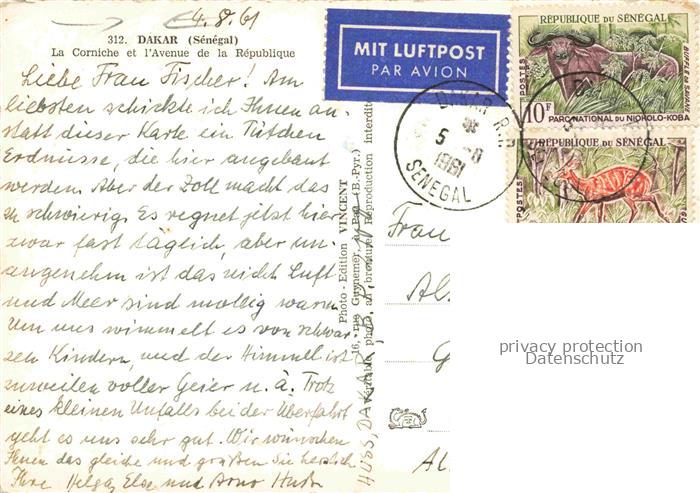 4.8.61
312. DAKAR (Sénégal)
La Corniche et l'Avenue de la République
Liebe Frau Fischer! Am
liebsten schickte ich Ihnen an-
statt dieser Karte ein Tütchen
Erdnüsse, die hier angebaut
werden. Aber der Zoll macht das
zu schwierig. Es regnet jetzt hier
zwar fast täglich, aber un-
angenehm ist das nicht. Luft
und Meer sind mollig warm.
Um uns wimmelt es von schwar-
zen Kindern, und der Himmel ist
zuweilen voller Geier u. ä. Trotz
eines kleinen Unfalls bei der Überfahrt
geht es uns sehr gut. Wir wünschen
Ihnen das gleiche und grüßen Sie herzlich
Ihre Helga, Else und Arno Huß
MIT LUFTPOST
PAR AVION
RÉPUBLIQUE DU SÉNÉGAL
POSTES
10F
PARC NATIONAL DU NIOKOLO-KOBA
RÉPUBLIQUE DU SÉNÉGAL
POSTES
DAKAR R.P
5 -8
1961
SENEGAL
Photo - Edition VINCENT
16, rue Guynemer, Pau (B.-Pyr.)
Véritable photo au bromure. Reproduction interdite
HUSS, DAKAR, B.P.
Frau
Al
G
Al
privacy protection
Datenschutz